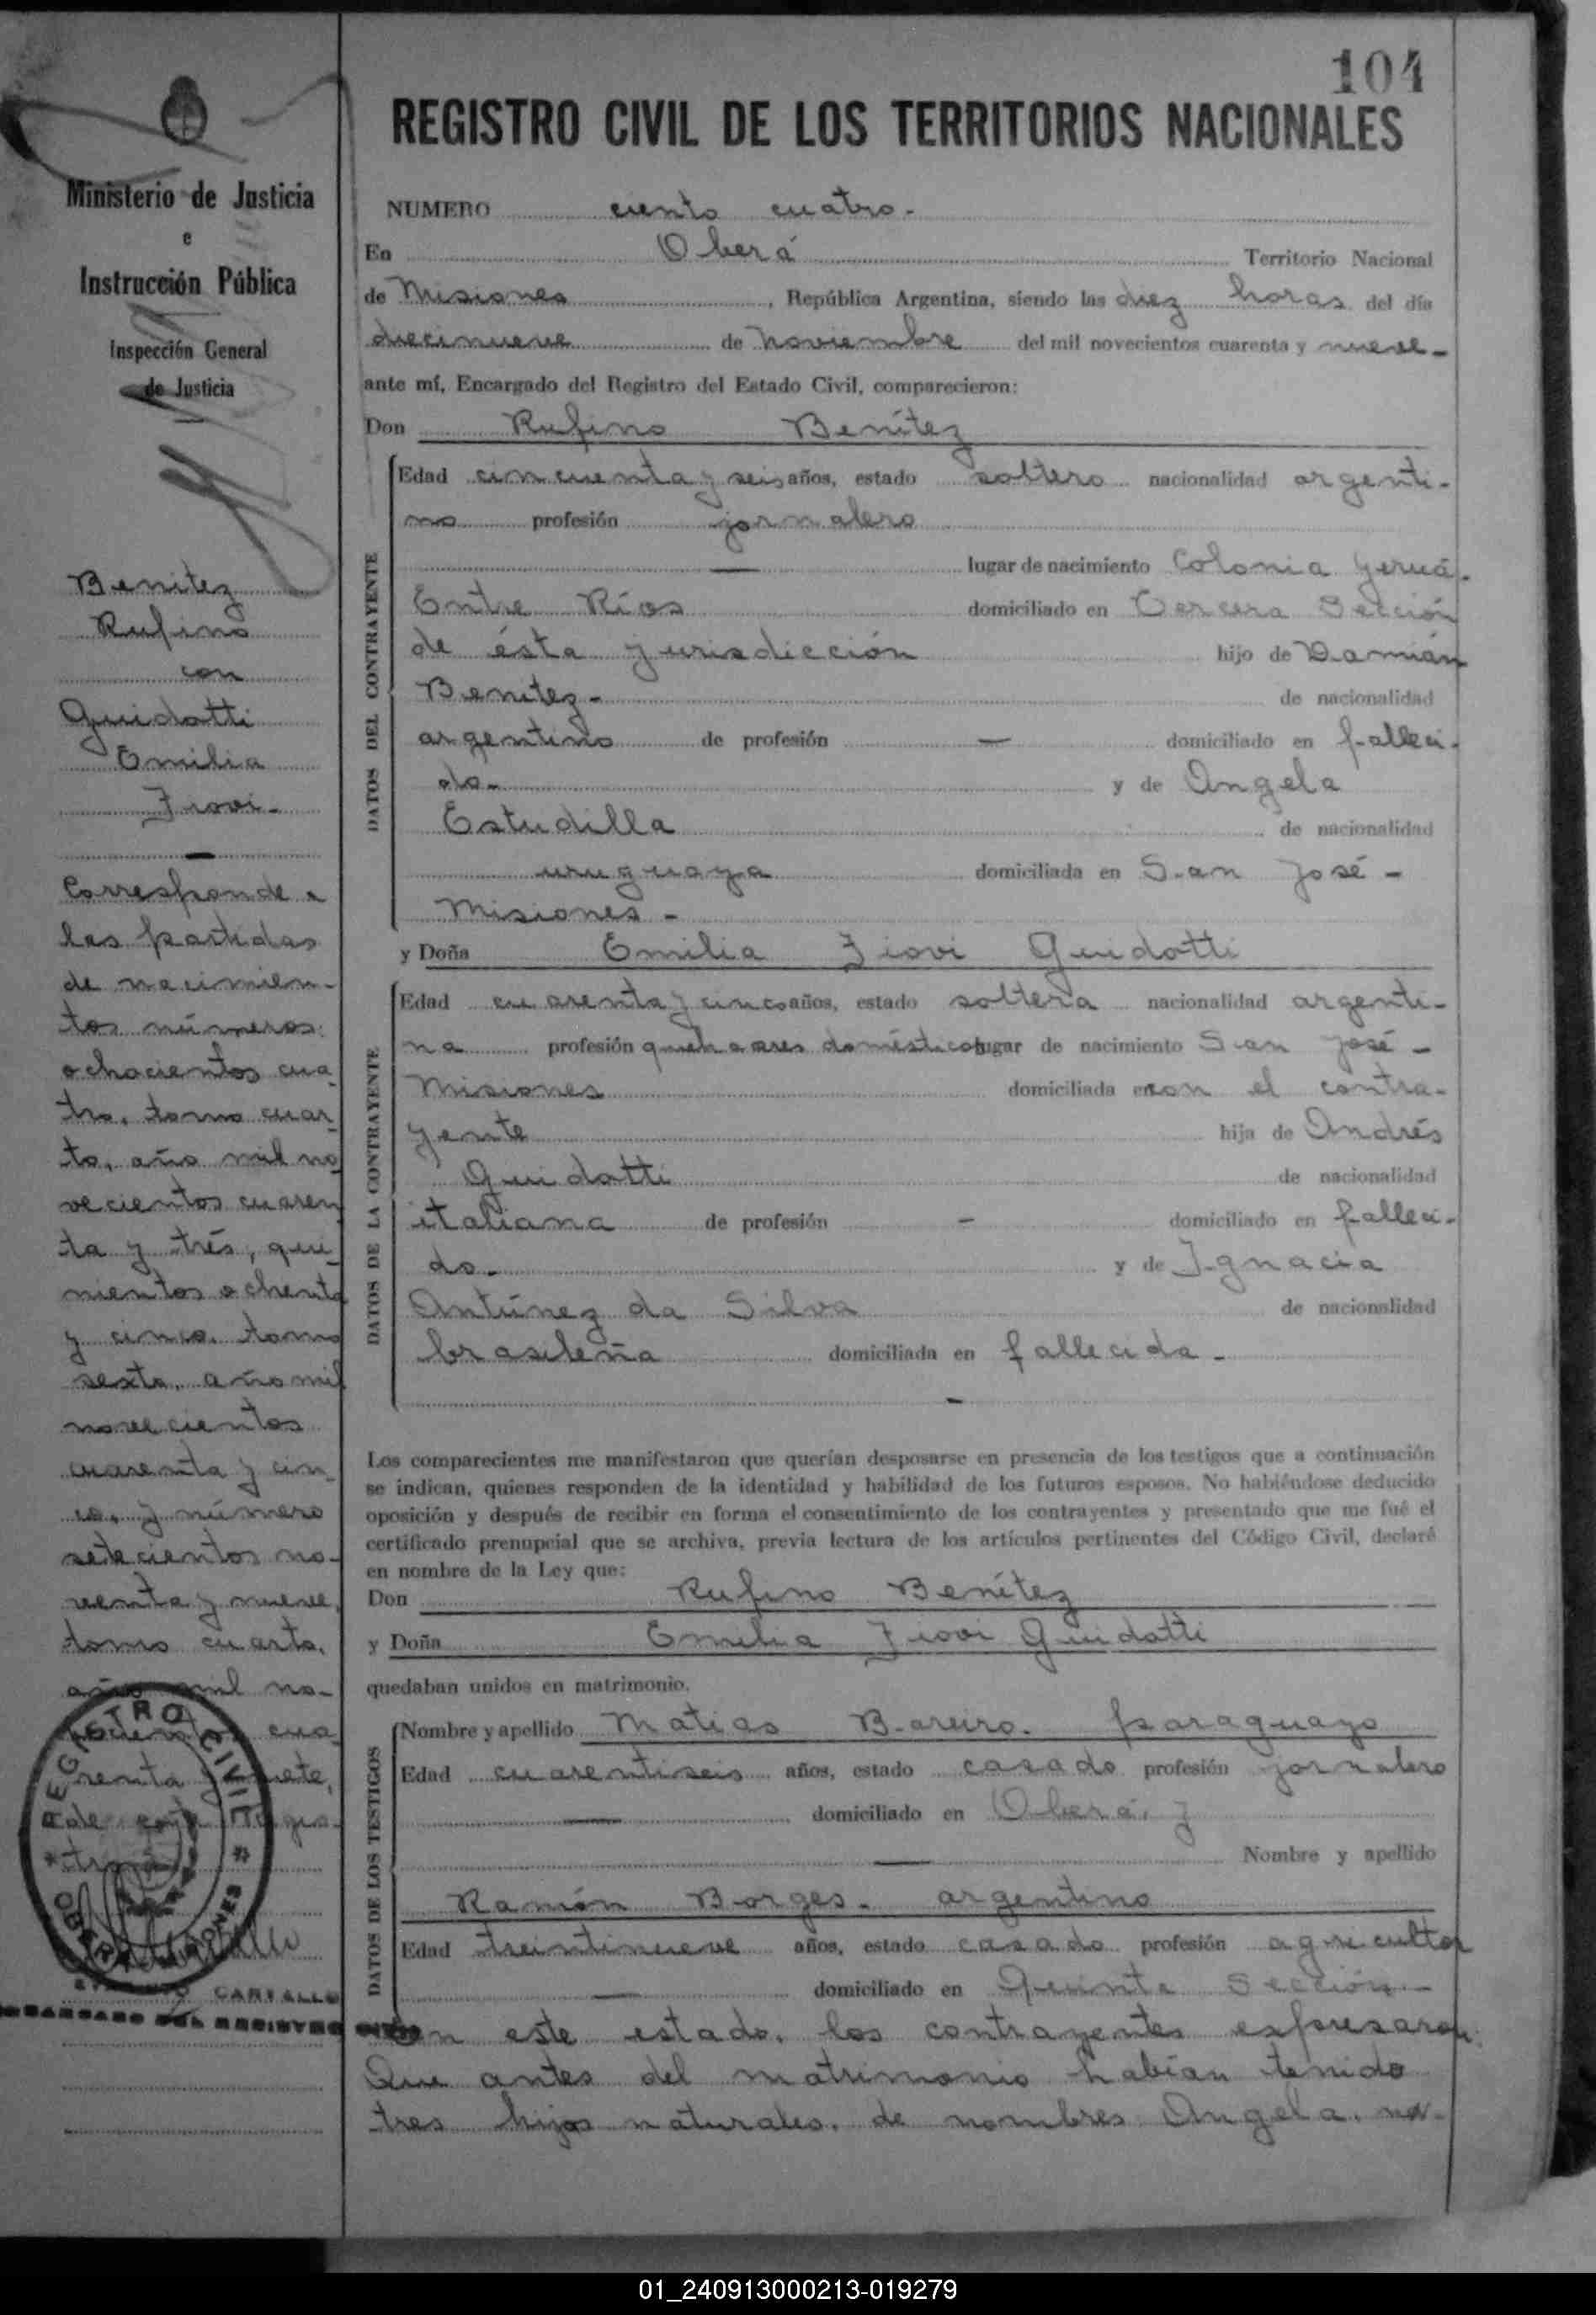 104
REGISTRO CIVIL DE LOS TERRITORIOS NACIONALES
Ministerio de Justicia
e
Instrucción Pública
Inspección General
de Justicia
Benitez
Rufino
con
Guidotti
Emilia
Fiovi-
Corresponde a
las partidas
de nacimien-
tos números:
ochocientos cua
tro, tomo cuar
to, año mil no
vecientos cuaren
ta y trés, qui
nientos ochenta
y cinco, tomo
sexto, año mil
novecientos
cuarenta y cin
co, y número
setecientos no-
venta y nueve,
tomo cuarto,
año mil no-
vecientos cua
renta y siete,
de este Regis-
tro
REGISTRO CIVIL
OBERA MISIONES
CARVALLO
ENCARGADO DEL REGISTRO CIVIL
NUMERO ciento cuatro-
En Oberá Territorio Nacional
de Misiones, República Argentina, siendo las diez horas del día
diecinueve de noviembre del mil novecientos cuarenta y nueve-
ante mí, Encargado del Registro del Estado Civil, comparecieron:
Don Rufino Benítez
DATOS DEL CONTRAYENTE
Edad cincuenta y seis años, estado soltero nacionalidad argenti-
no profesión jornalero
— lugar de nacimiento Colonia Yeruá-
Entre Ríos domiciliado en Tercera Sección
de ésta jurisdicción hijo de Damián
Benitez- de nacionalidad
argentino de profesión — domiciliado en falleci-
do- y de Angela
Estudilla de nacionalidad
uruguaya domiciliada en San José -
Misiones -
y Doña Emilia Fiovi Guidotti
DATOS DE LA CONTRAYENTE
Edad cuarenta y cinco años, estado soltera nacionalidad argenti-
na profesión quehaceres domésticos lugar de nacimiento San José -
Misiones domiciliada en con el contra-
yente hija de Andrés
Guidotti de nacionalidad
italiana de profesión - domiciliado en falleci-
do- y de Ignacia
Antúnez da Silva de nacionalidad
brasileña domiciliada en fallecida -
-
Los comparecientes me manifestaron que querían desposarse en presencia de los testigos que a continuación
se indican, quienes responden de la identidad y habilidad de los futuros esposos. No habiéndose deducido
oposición y después de recibir en forma el consentimiento de los contrayentes y presentado que me fué el
certificado prenupcial que se archiva, previa lectura de los artículos pertinentes del Código Civil, declaré
en nombre de la Ley que:
Don Rufino Benítez
y Doña Emilia Fiovi Guidotti
quedaban unidos en matrimonio.
DATOS DE LOS TESTIGOS
Nombre y apellido Matias Bareiro- paraguayo
Edad cuarentiseis años, estado casado profesión jornalero
— domiciliado en Oberá, y
— Nombre y apellido
Ramón Borges- argentino
Edad treintinueve años, estado casado profesión agricultor
— domiciliado en Quinta Sección-
En este estado, los contrayentes expresaron:
Que antes del matrimonio habían tenido
tres hijos naturales, de nombres Angela, na-
01_240913000213-019279